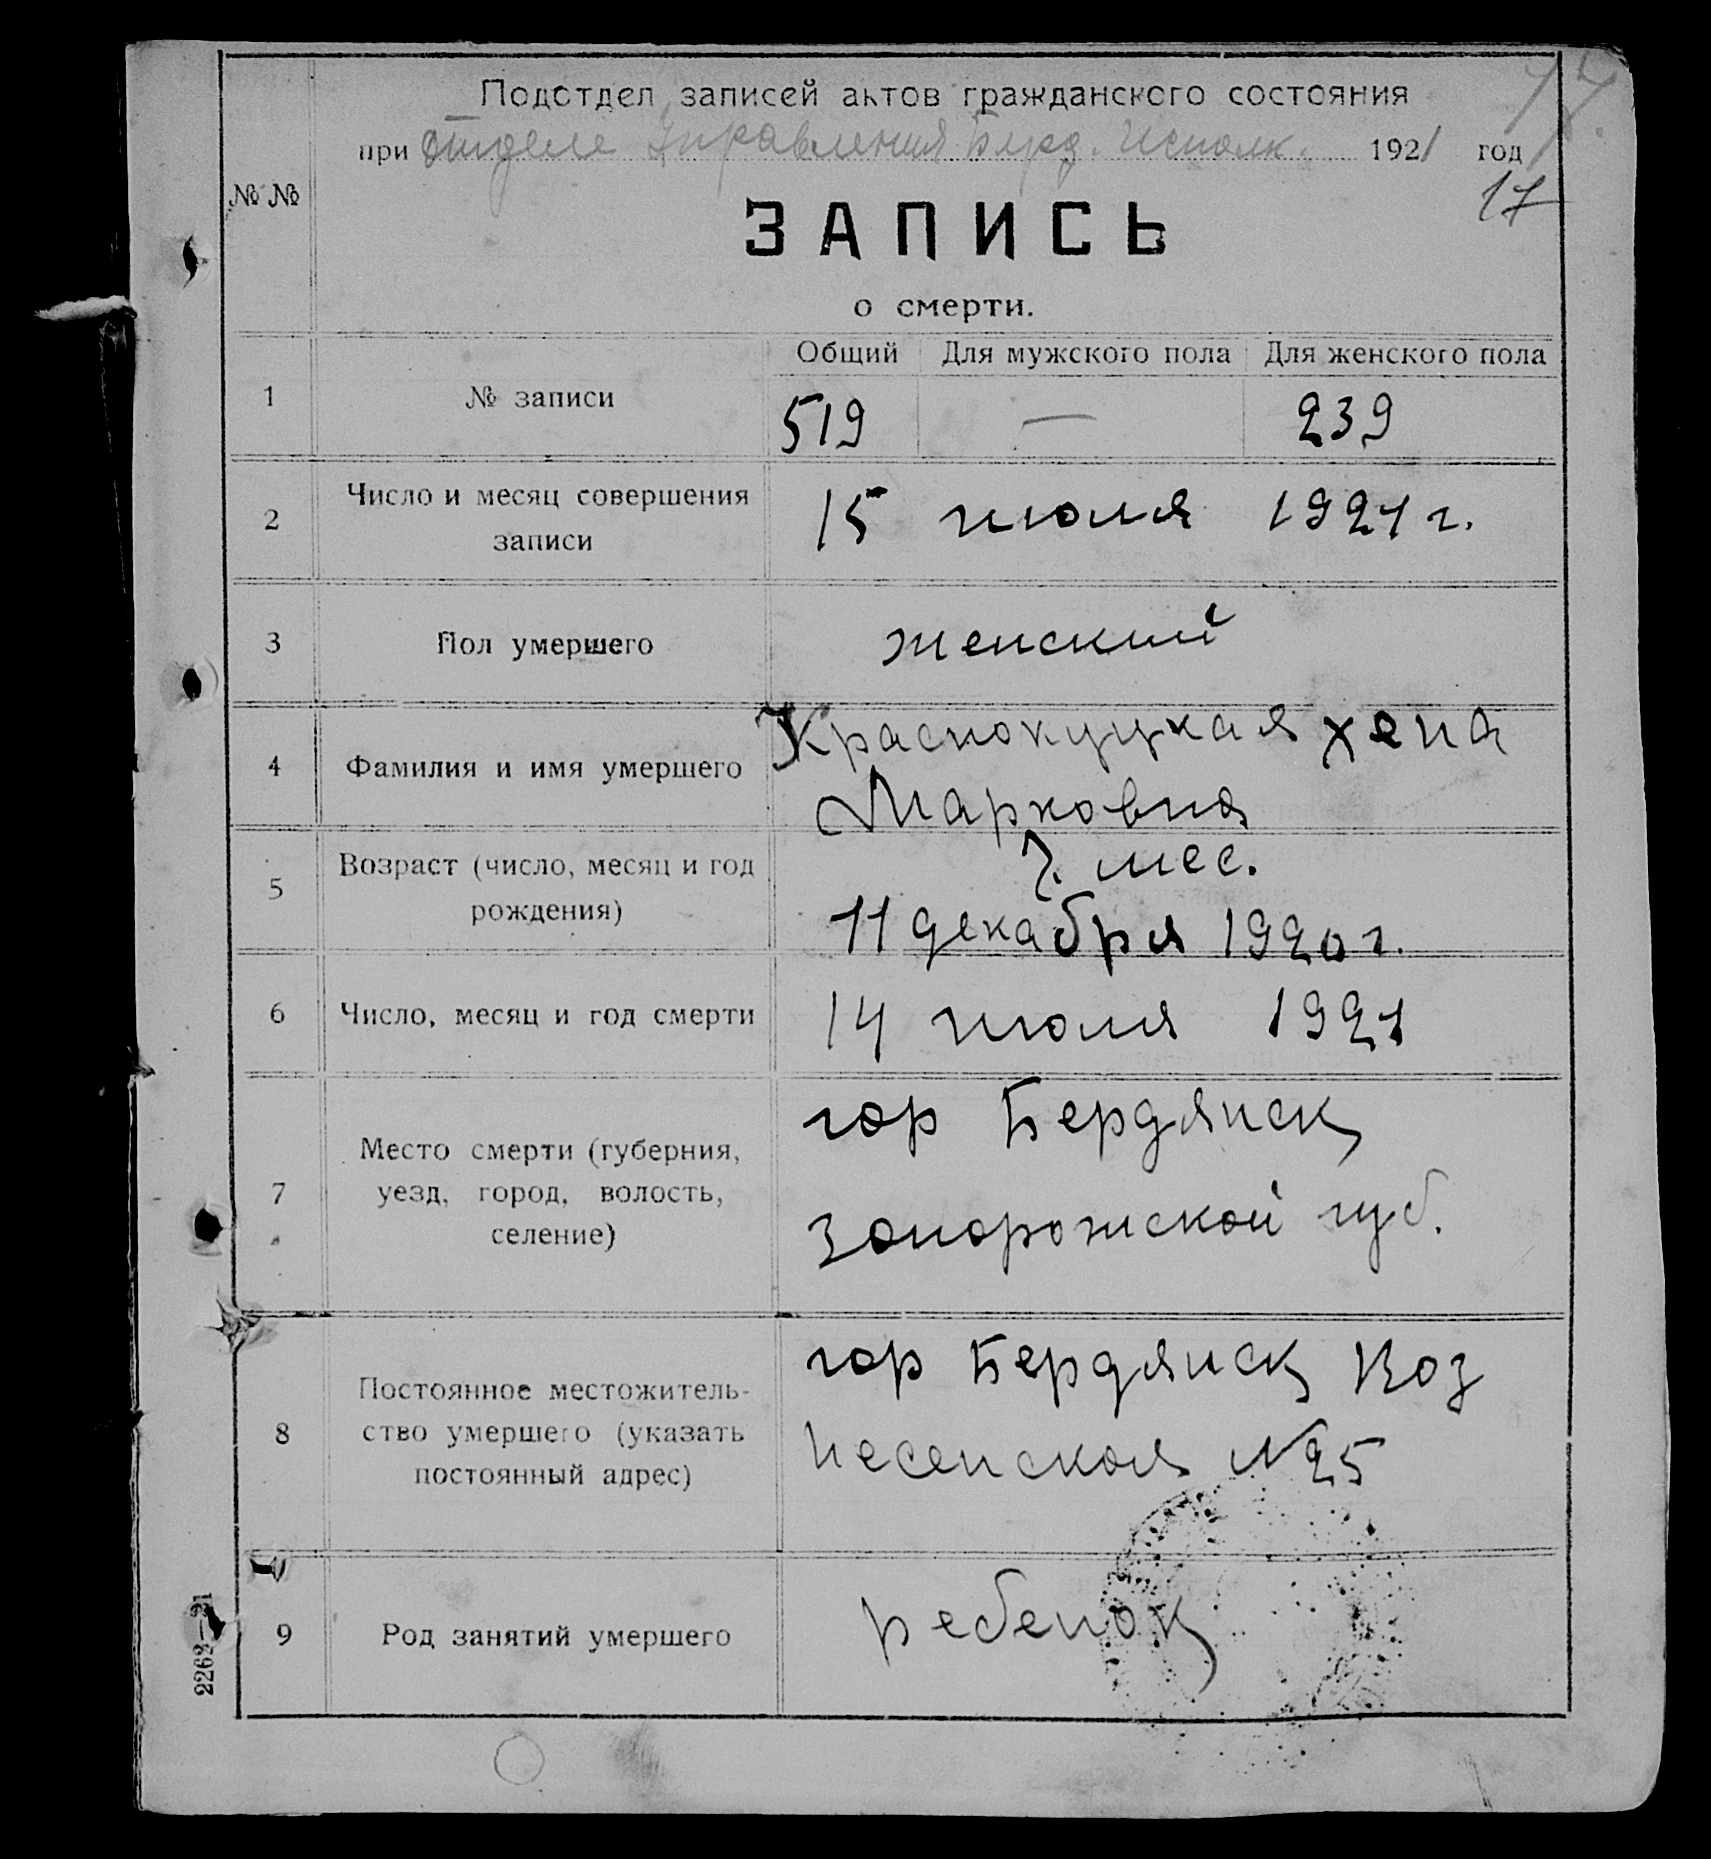 Подотдел записей актов гражданского состояния
при Отделе Управления Берд. Исполк. 1921 год
17
№ №
ЗАПИСЬ
о смерти.
Общий Для мужского пола Для женского пола
1 № записи 519 — 239
2 Число и месяц совершения 15 июля 1921 г.
записи
3 Пол умершего женский
Краснокуцкая Хена
4 Фамилия и имя умершего
Марковна
7. мес.
Возраст (число, месяц и год
5
рождения) 11 декабря 1920 г.
6 Число, месяц и год смерти 14 июля 1921
гор Бердянск
Место смерти (губерния,
7 уезд, город, волость,
селение) Запорожской губ.
гор Бердянск Воз
Постоянное местожитель-
8 ство умершего (указать
несенская № 25
постоянный адрес)
9 Род занятий умершего ребенок
2262—21